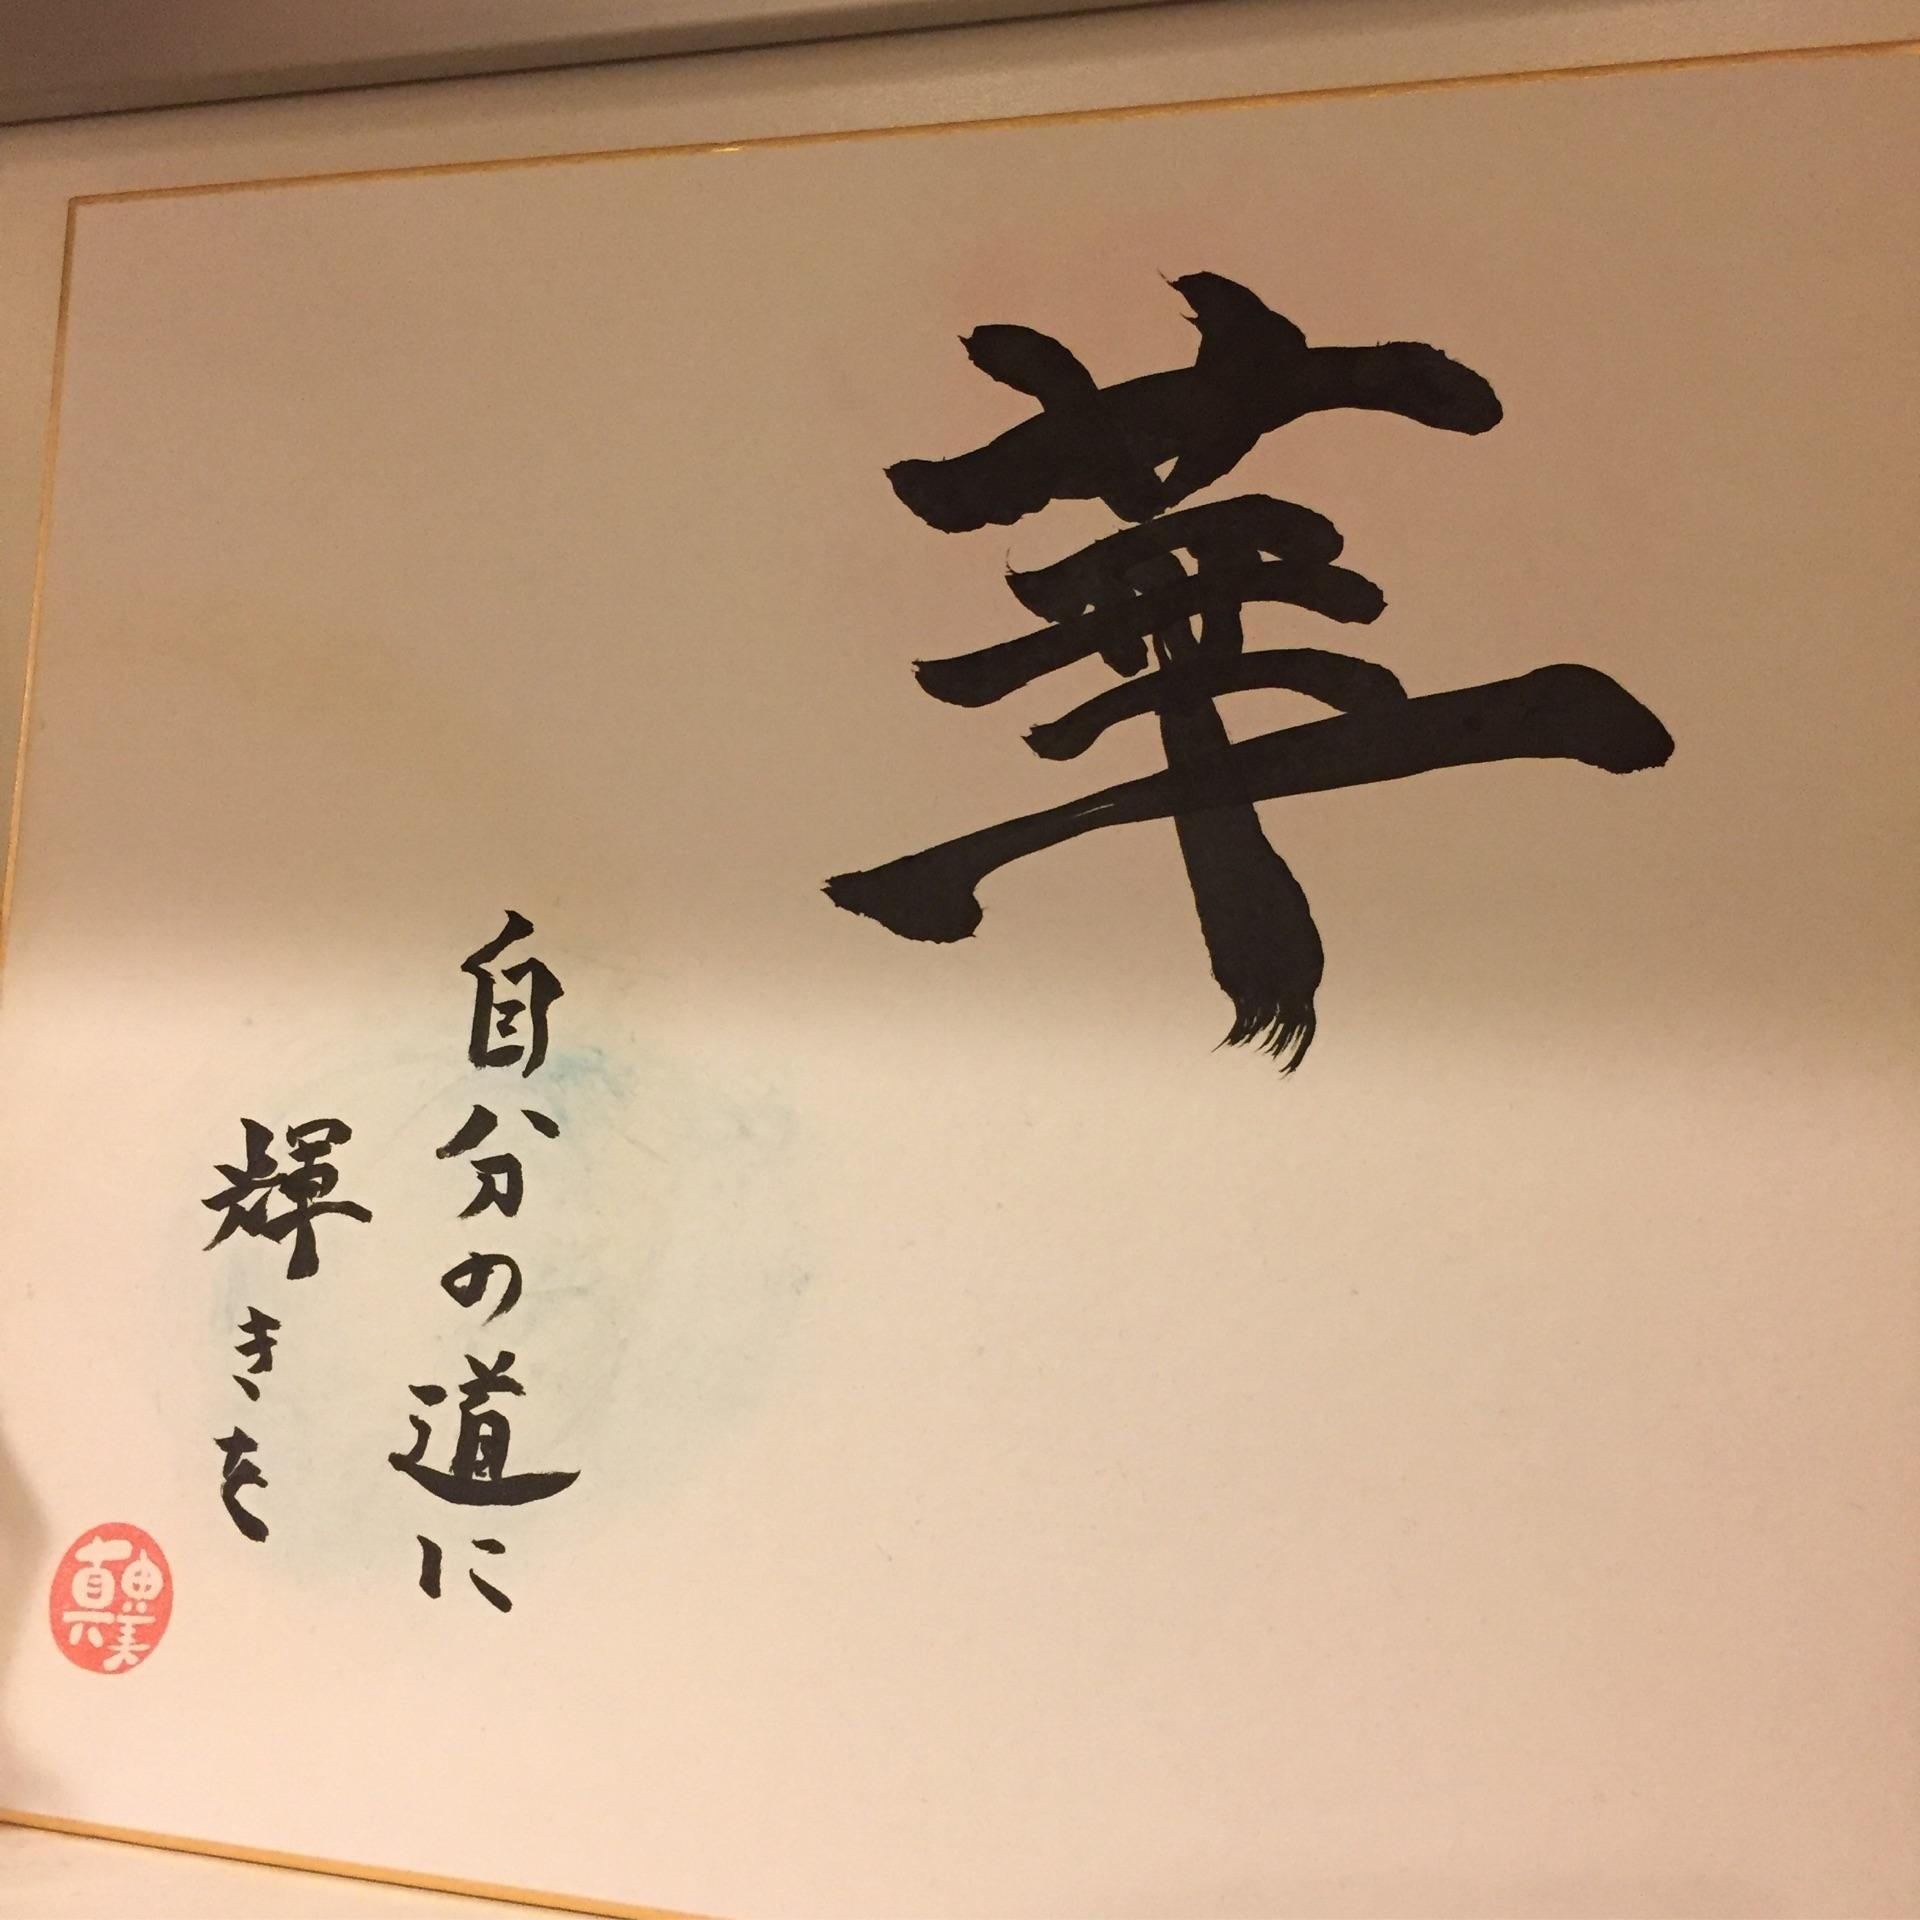 華
自分の道に
輝きを
真由美